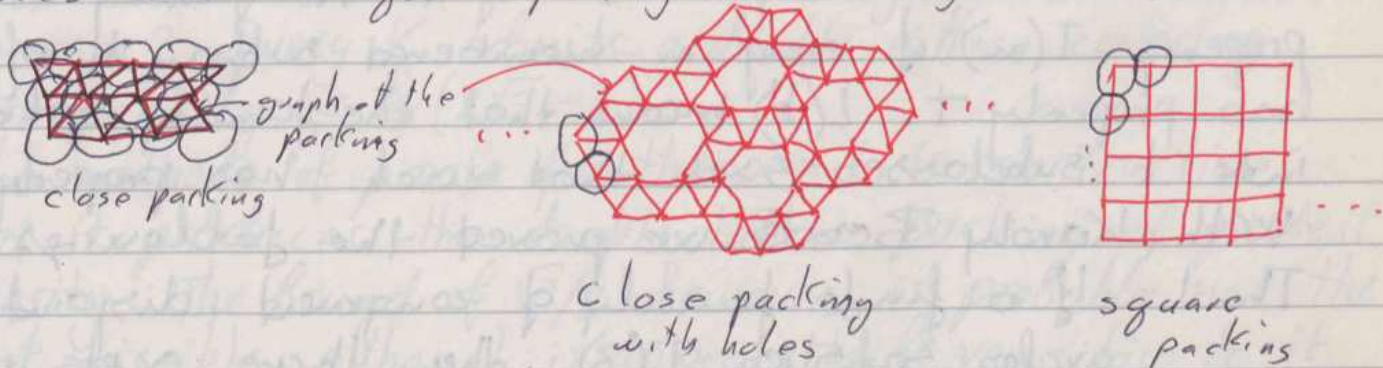 graph of the
packing
close packing
close packing
with holes
square
packing